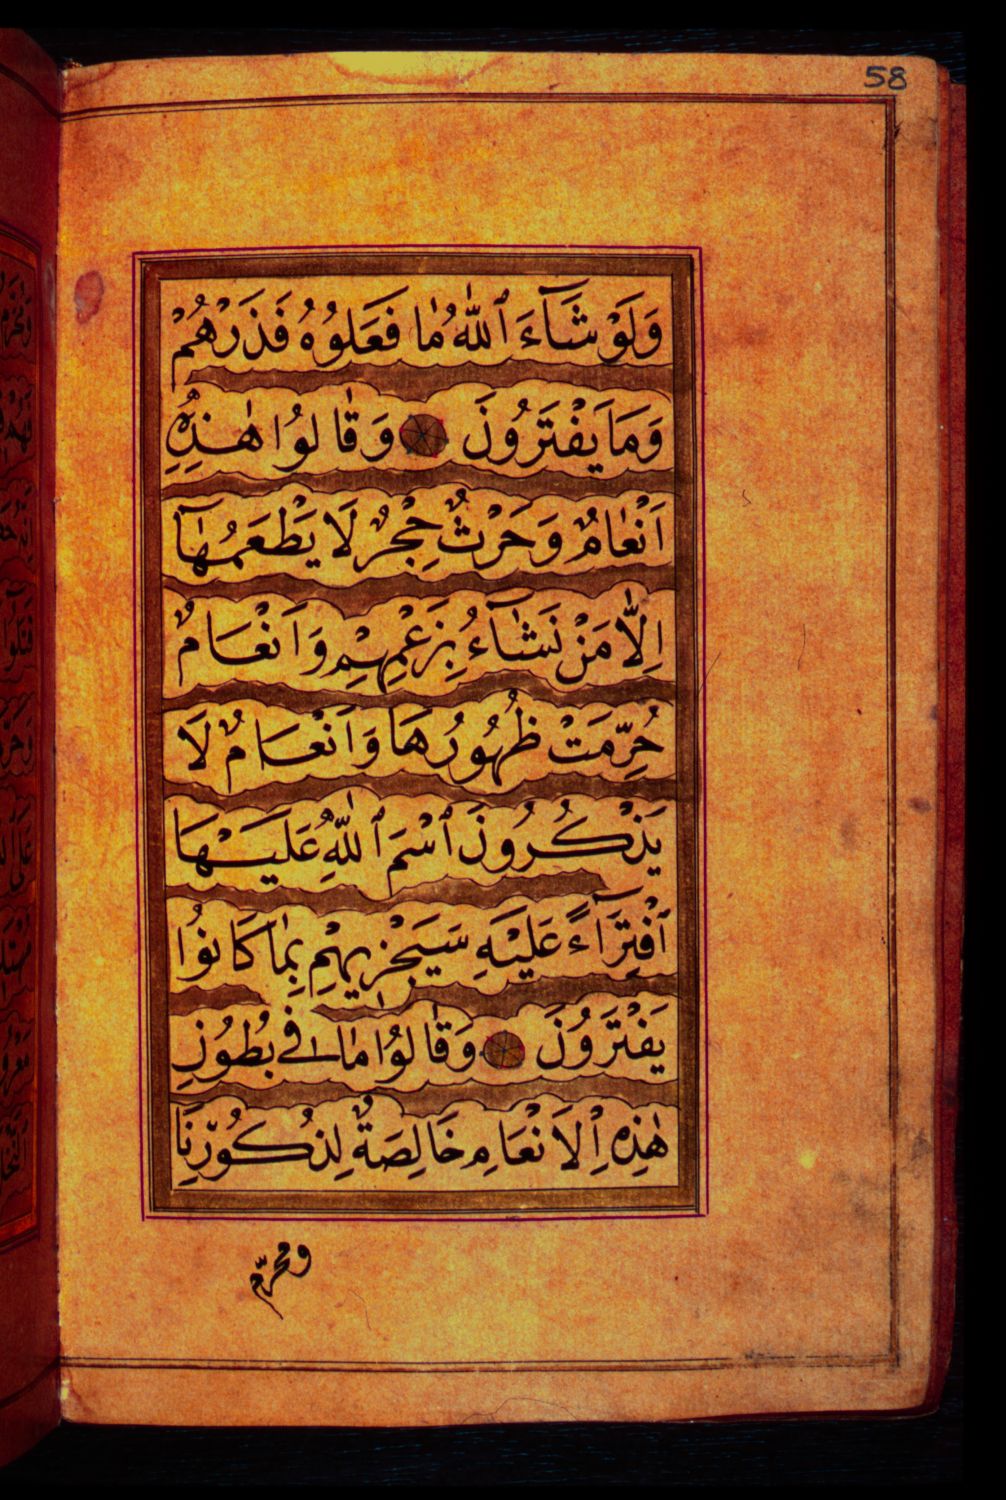 58
وَلَوْ شَآءَ ٱللّٰهُ مٰا فَعَلُوهُ فَذَرْهُمْ
وَمَا يَفْتَرُونَ وَقٰالُوا هٰذِهِ
اَنْعٰامٌ وَحَرْثٌ حِجْرٌ لَا يَطْعَمُهٰٓا
اِلّٰا مَنْ نَشٰٓاءُ بِزَعْمِهِمْ وَاَنْعَامٌ
حُرِّمَتْ ظُهُورُهَا وَاَنْعَامٌ لَا
يَذْكُرُونَ ٱسْمَ ٱللّٰهِ عَلَيْهَا
ٱفْتِرَآءً عَلَيْهِ سَيَجْزِيهِمْ بِمٰا كَانُوا
يَفْتَرُونَ وَقٰالُوا مٰا فِي بُطُونِ
هٰذِهِ اِلْاَنْعَامِ خَالِصَةٌ لِذُكُورِنَا
ومحرّم